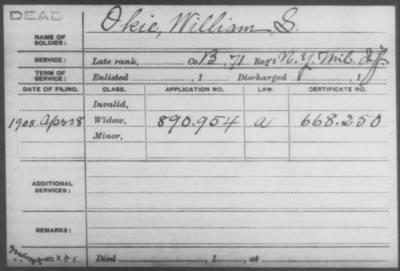 DEAD
NAME OF SOLDIER: Okie, William S.
SERVICE: Late rank, Co B. 71 Reg't N.Y. Mil. Inf.
TERM OF SERVICE: Enlisted , 1 Discharged , 1
DATE OF FILING. CLASS. APPLICATION NO. LAW. CERTIFICATE NO.
Invalid,
1908. Apr 28 Widow, 890.954 a 668.250
Minor,
ADDITIONAL SERVICES:
REMARKS:
Died , 1 , at